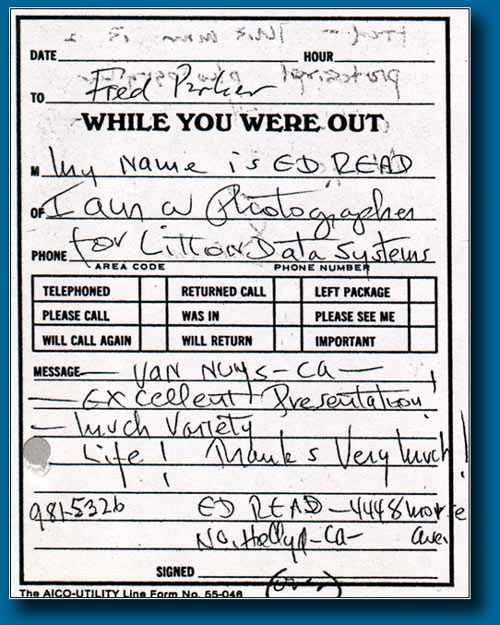 DATE HOUR
TO Fred Parker
WHILE YOU WERE OUT
M My Name is ED READ
OF I am a Photographer
PHONE for Litton Data Systems
AREA CODE PHONE NUMBER
TELEPHONED RETURNED CALL LEFT PACKAGE
PLEASE CALL WAS IN PLEASE SEE ME
WILL CALL AGAIN WILL RETURN IMPORTANT
MESSAGE — VAN NUYS - CA —
— Excellent Presentation!
— Much Variety
Life! Thanks Very Much!
981-5326 ED READ - 4448 Morse
No. Hollyd - CA - Ave.
SIGNED
(over)
The AICO-UTILITY Line Form No. 55-046